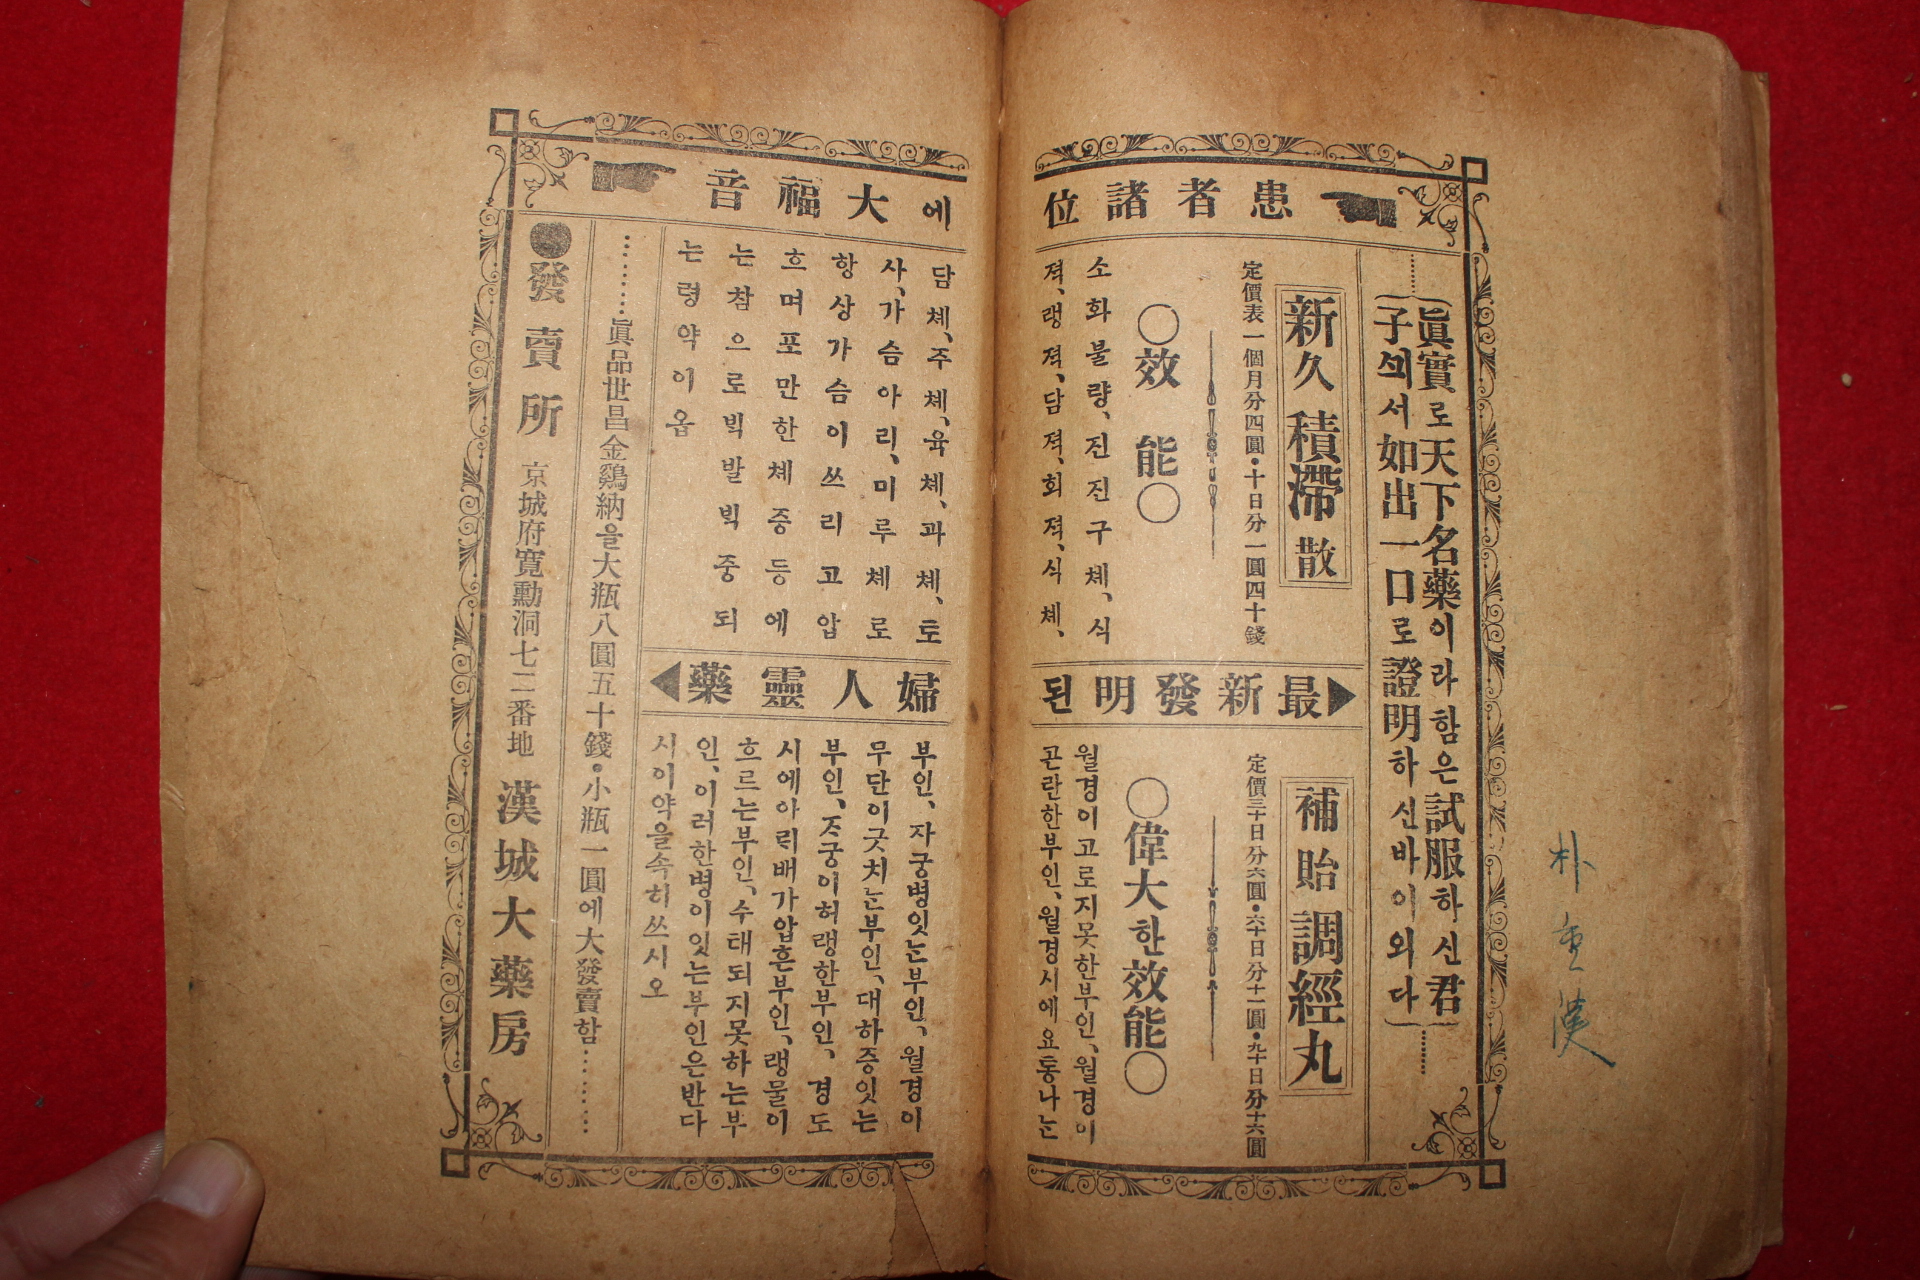 患者諸位에大福音
眞實로天下名藥이라함은試服하신君
子싀서如出一口로證明하신바이외다
新久積滯散
定價表一個月分四圓•十日分一圓四十錢
○效能○
소화불량、진진구체、식
젹、랭젹、담젹、회젹、식체、
담체、주체、육체、과체、토
사、가슴아리、미루체로
항상가슴이쓰리고압
흐며포만한체증등에
는참으로빅발빅중되
는령약이옵
最新發明된婦人靈藥
補胎調經丸
定價三十日分六圓•六十日分十一圓•九十日分十六圓
○偉大한效能○
월경이고로지못한부인、월경이
곤란한부인、월경시에요통나는
부인、자궁병잇는부인、월경이
무단이긋치는부인、대하증잇는
부인、자궁이허랭한부인、경도
시에아릭배가압흔부인、랭물이
흐르는부인、수태되지못하는부
인、이러한병이잇는부인은반다
시이약을속히쓰시오
眞品世昌金鷄納을大瓶八圓五十錢•小瓶一圓에大發賣함
●發賣所 京城府寬勳洞七二番地 漢城大藥房
朴重漢